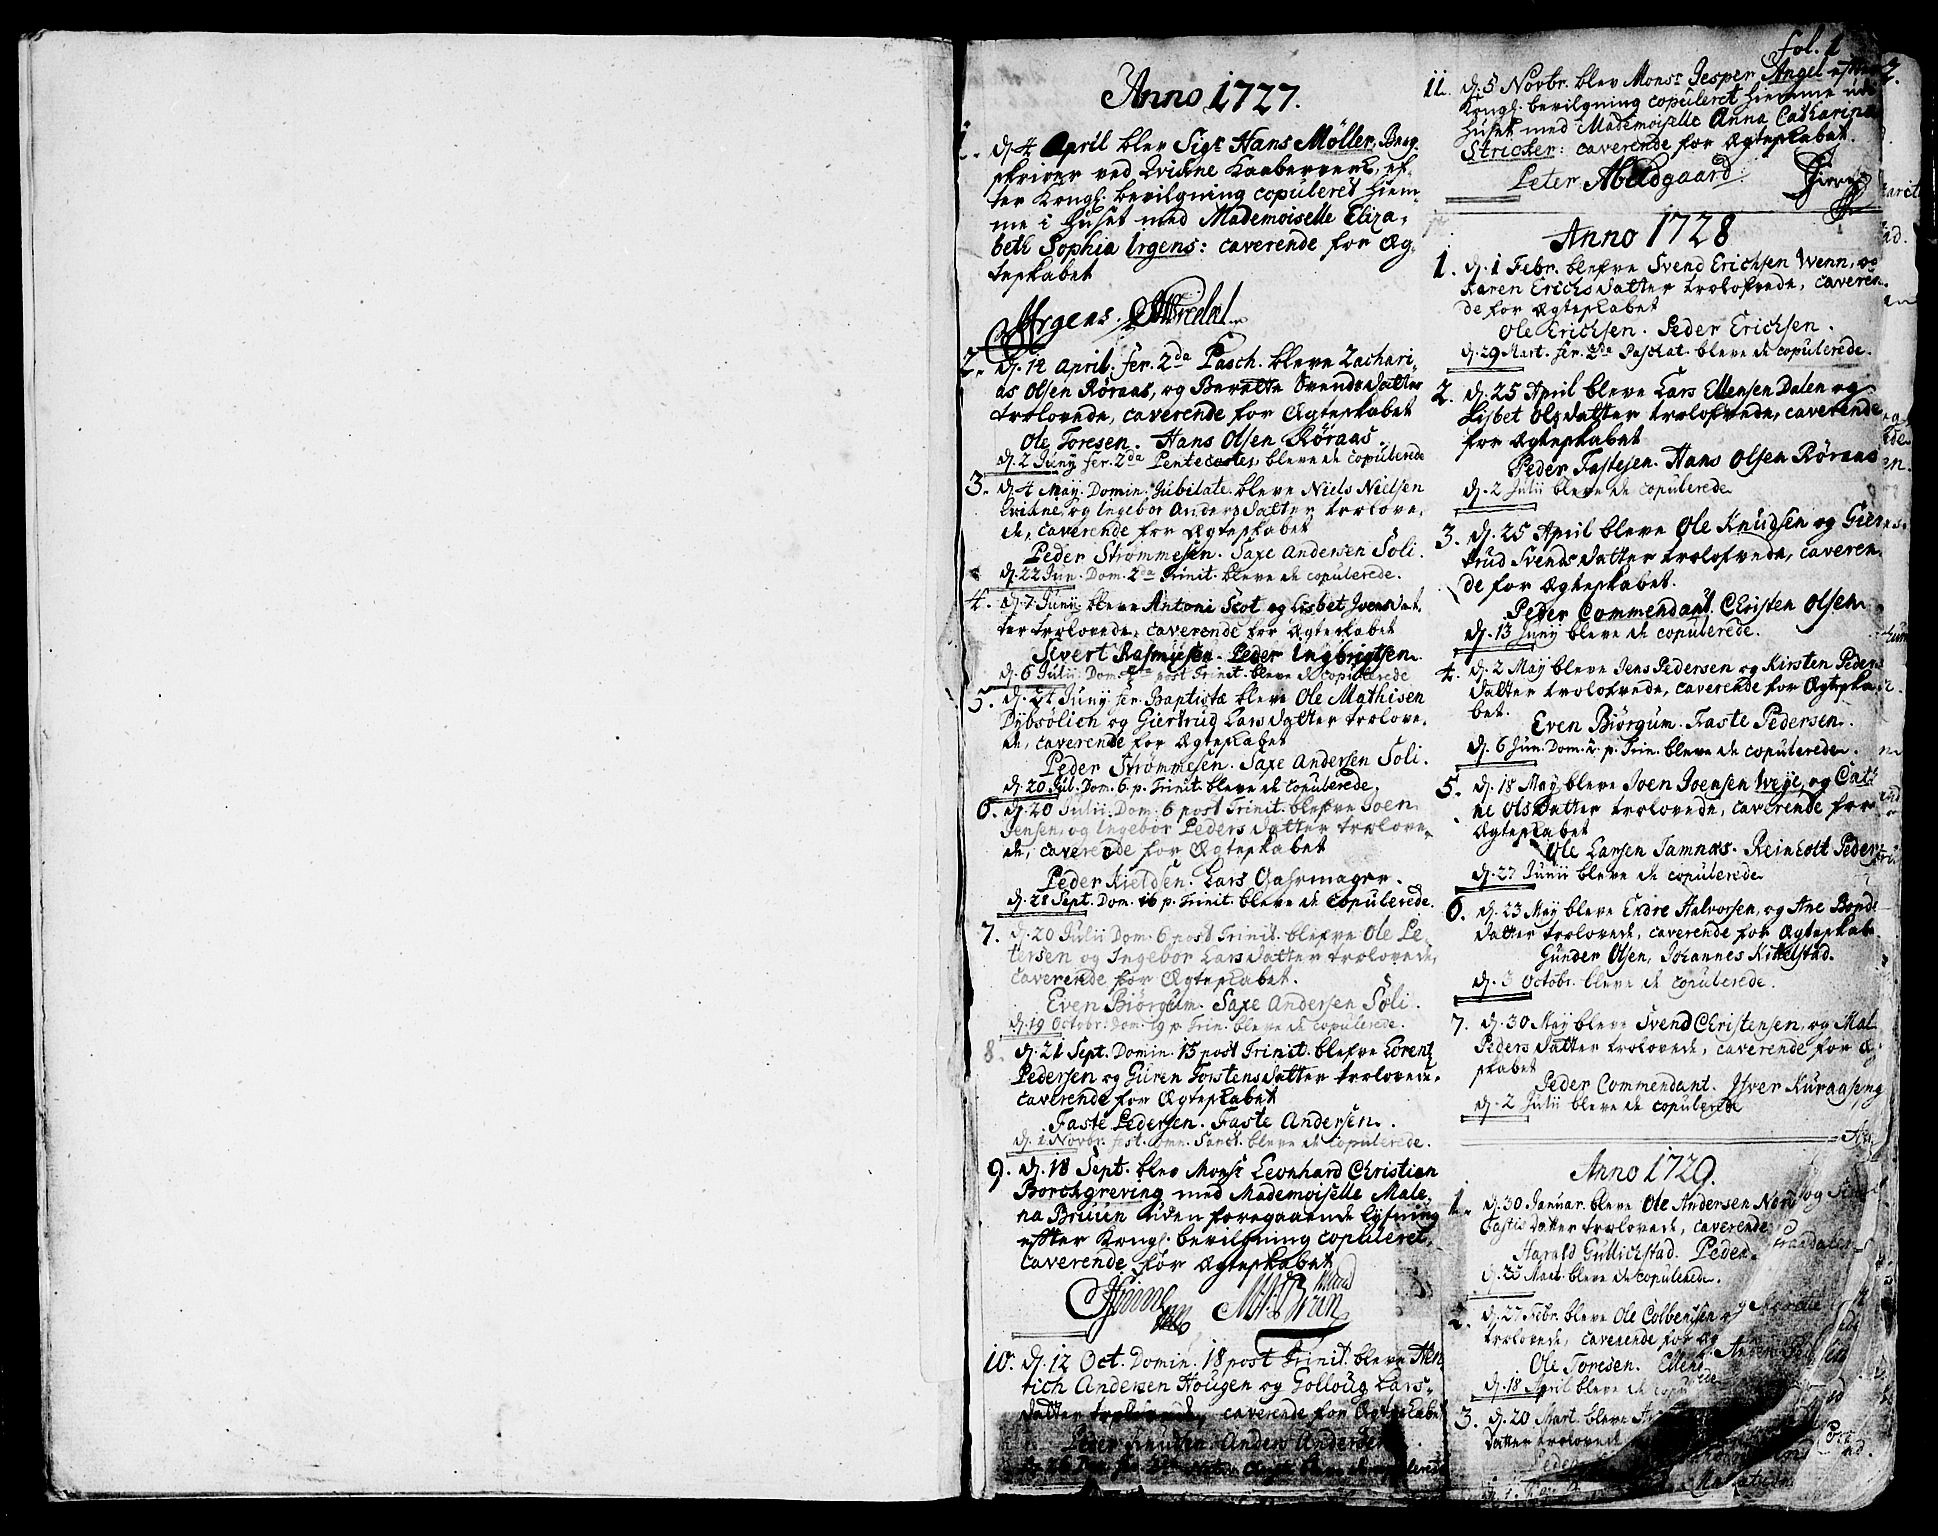 Anno 1727.
1. d. 4 April blev Sigr Hans Möller, Berg
skriver ved Qvikne Kaaberverk, ef-
ter Kongl. bevilgning copuleret hiem-
me i Huset med Mademoiselle Eliza-
beth Sophia Irgens: caverende for Æg-
teskabet
Irgens.
2. d. 14 April. fer. 2da Pasch. bleve Zachari-
as Olsen Røraas, og Berette Svends datter
trolovede, caverende for Ægteskabet
Ole Toresen. Hans Olsen Røraas.
d. 2 Junij fer. 2da Pentecostes bleve de copulerede
3. d. 4 May. Domin. Jubilate. bleve Niels Nielsen
Qvikne og Ingebor Anders datter trolove-
de, caverende for Ægteskabet
Peder Strømmesen. Saxe Andersen Soli.
d. 22 Jun. Dom. 2da Trinit. bleve de copulerede.
4. d. 7 Junij bleve Antoni Scot og Lisbet Joens dat-
ter trolovede, caverende for Ægteskabet
Sivert Rasmusen. Peder Ingbrigtsen.
d. 6 Julii Dom. post Trinit. bleve de copulerede
5. d. 24 Junij fer. Baptistæ bleve Ole Mathisen
Dybsölien og Giertrud Lars datter trolove-
de, caverende for Ægteskabet
Peder Strømmesen. Saxe Andersen Soli.
d. 20 Jul. Dom. 6 p. Trinit. bleve de copulerede.
6. d. 20 Julii Dom. 6 post Trinit. blefve Joen
Jensen, og Ingebor Peders datter trolove-
de, caverende for Ægteskabet
Peder Kieldsen. Lars Gahrmager.
d. 28 Sept. Dom. 16 p. Trinit. bleve de copulerede.
7. d. 20 Julii Dom. 6 post Trinit. blefve Ole Pe-
tersen og Ingebor Lars datter trolovede,
caverende for Ægteskabet.
Even Biörgum. Saxe Andersen Soli.
d. 19 Octobr. Dom. 19 p. Trin. bleve de copulerede.
8. d. 21 Sept. Domin. 15 post Trinit. blefve Lorentz
Pedersen og Guren Torstens datter trolovede.
caverende for Ægteskabet
Faste Pedersen. Faste Andersen.
d. 1 Novbr. fest. omn. Sanct. bleve de copulerede.
9. d. 18 Sept. blev Monsr Leonhard Christian
Borchgreving med Mademoiselle Male-
na Bruun uden foregaaende lysning
efter Kongl. bevilgning copuleret,
caverende for Ægteskabet
10. d. 12 Oct. Domin. 18 post Trinit. bleve Hen-
rich Andersen Hougen og Golloug Lars-
datter trolovede, caverende for Ægteskabet
Peder Knudsen Anders Andersen
fol. 1
11. d. 5 Novbr. blev Monsr Jesper Angel efter
Kongl. bevilgning copuleret hiemme udi
Huset med Mademoiselle Anna Catharina
Stricker: caverende for Ægteskabet.
Peter Abildgaard.
Anno 1728
1. d. 1 Febr. blefve Svend Erichsen Wenn, og
Karen Erichs datter trolofvede, caveren-
de for Ægteskabet
Ole Erichsen. Peder Erichsen.
d. 29 Mart. fer. 2da Paschat. bleve de copulerede.
2. d. 25 April bleve Lars Ellensen Dalen og
Lisbet Ols datter trolofvede, caverende
for Ægteskabet
Peder Fastesen. Hans Olsen Røraas
d. 2 Julii bleve de copulerede
3. d. 25 April bleve Ole Knudsen og Gier-
trud Svends datter trolofvede, caveren-
de for Ægteskabet.
Peder Commendant. Christen Olsen
d. 13 Junij bleve de copulerede.
4. d. 2 May bleve Jens Pedersen og Kirsten Peders
datter trolofvede, caverende for Ægteska-
bet.
Even Biörgum. Faste Pedersen.
d. 6 Jun. Dom. 2. p. Trin. bleve de copulerede.
5. d. 18 May bleve Joen Joensen Weye, og Cath
ne Ols datter trolovede, caverende for
Ægteskabet
Ole Larsen Tamnæs. Reinholt Peder
d. 27 Junii bleve de copulerede
6. d. 23 May bleve Endre Halvorsen, og Ane Bonde
datter trolovede, caverende for Ægteskab.
Gunder Olsen, Johannes Kittelstad.
d. 3 Octobr. bleve de copulerede.
7. d. 30 May bleve Svend Christensen, og Mal
Peders datter trolovede, caverende for Æg
skabet
Peder Commendant. Iver Kuraaseng
d. 2 Julii bleve de copulerede
Anno 1729.
1. d. 30 Januar. bleve Ole Andersen Nord og
Fastes datter trolovede, caverende
Harald Gullichstad. Peder
d. 25 Mart. bleve de copulerede.
2. d. 27 Febr. bleve Ole Colbensen og
trolovede, caverende for Æg
Ole Toresen. Ellend
d. 18 April bleve de copulerede
3. d. 20 Mart. bleve
datter trolovede